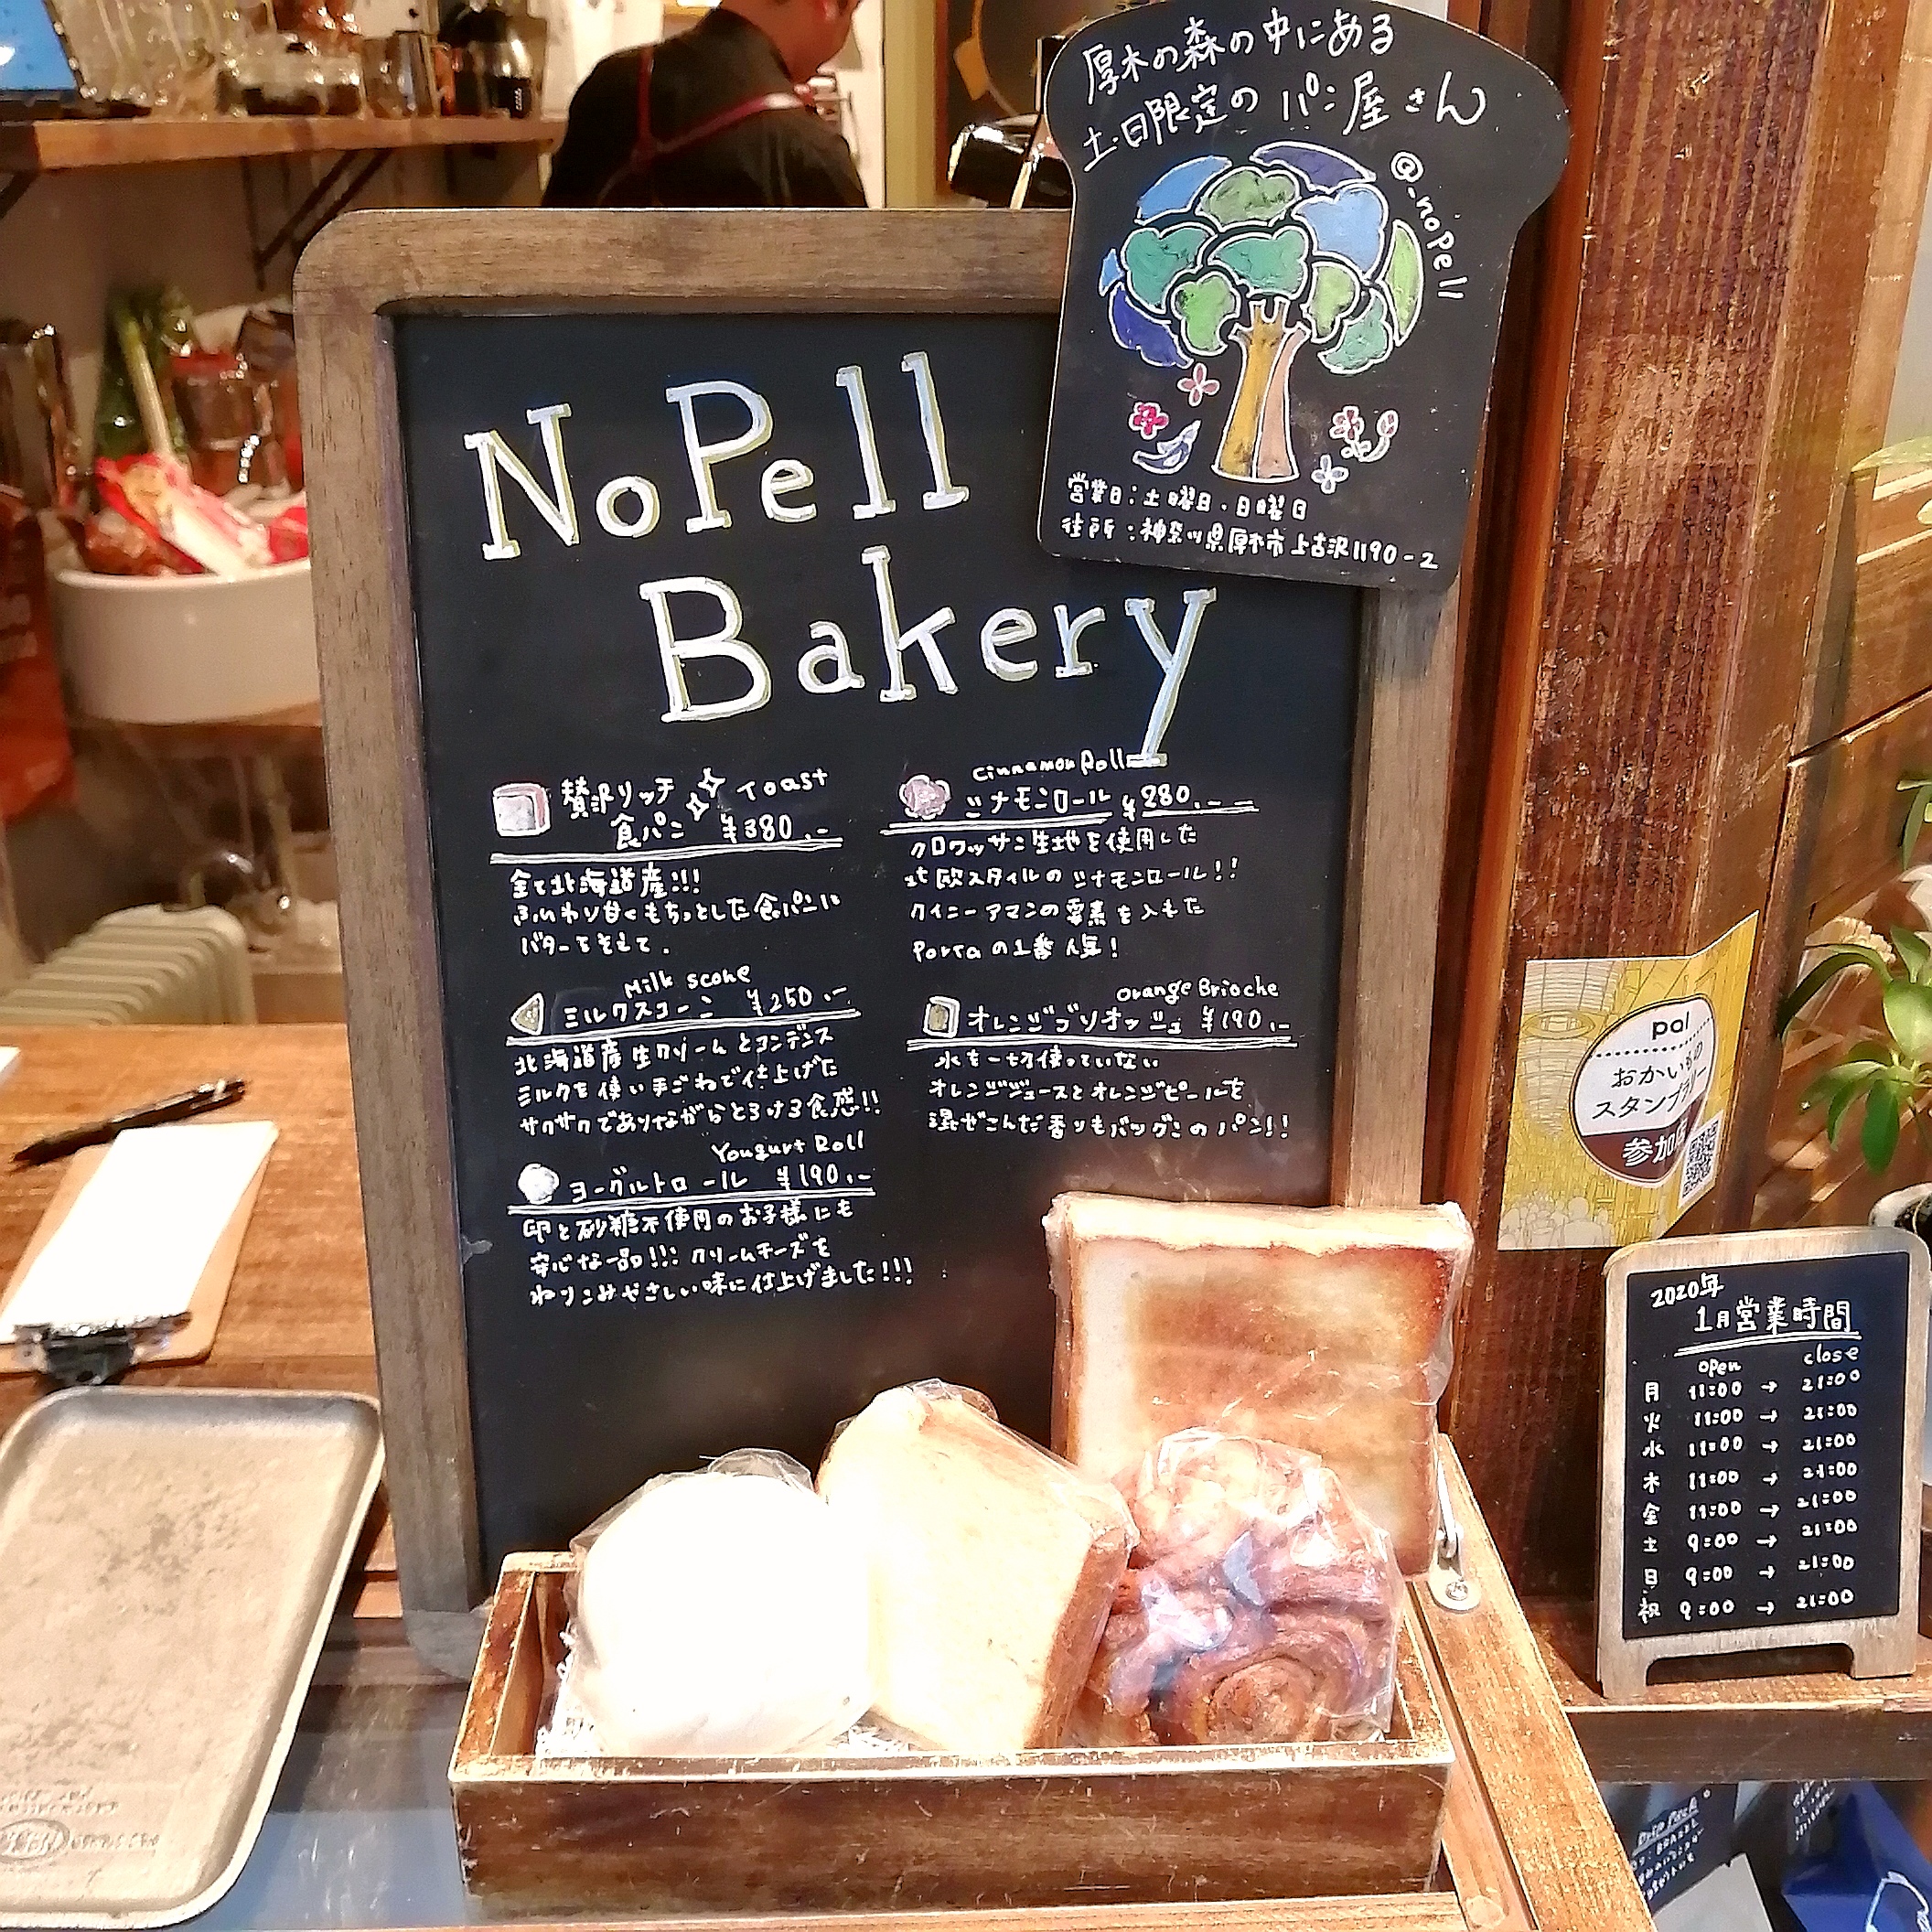 厚木の森の中にある
土日限定のパン屋さん
@_nopell
営業日:土曜日・日曜日
住所:神奈川県厚木市上古沢1190-2
NoPell
Bakery
贅沢リッチ Toast
食パン ¥380.-
全て北海道産!!!
ふんわり甘くもちっとした食パンに
バターをそえて.
Milk scone
ミルクスコーン ¥250.-
北海道産生クリームとコンデンス
ミルクを使い手ごねで仕上げた
サクサクでありながらとろける食感!!
Yougurt Roll
ヨーグルトロール ¥190.-
卵と砂糖不使用のお子様にも
安心な一品!!! クリームチーズを
ねりこみやさしい味に仕上げました!!!
cinnamon Roll
シナモンロール ¥280.-
クロワッサン生地を使用した
北欧スタイルのシナモンロール!!
クイニーアマンの要素を入れた
Portaの1番人気!
Orange Brioche
オレンジブリオッシュ ¥190.-
水を一切使っていない
オレンジジュースとオレンジピールを
混ぜこんだ香りもバツグンのパン!!
pal
おかいもの
スタンプラリー
参加店
2020年
1月営業時間
open close
月 11:00 → 21:00
火 11:00 → 21:00
水 11:00 → 21:00
木 11:00 → 21:00
金 11:00 → 21:00
土 9:00 → 21:00
日 9:00 → 21:00
祝 9:00 → 21:00
Drip Pack